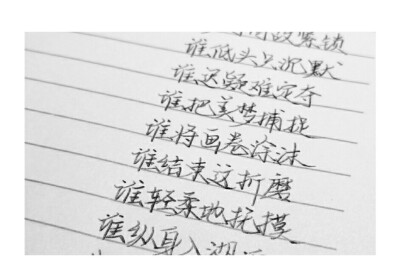 紧锁
谁低头只沉默
谁迟疑难定夺
谁把美梦捕捉
谁将画卷涂沫
谁结束这折磨
谁轻柔地抚摸
谁纵身入湖